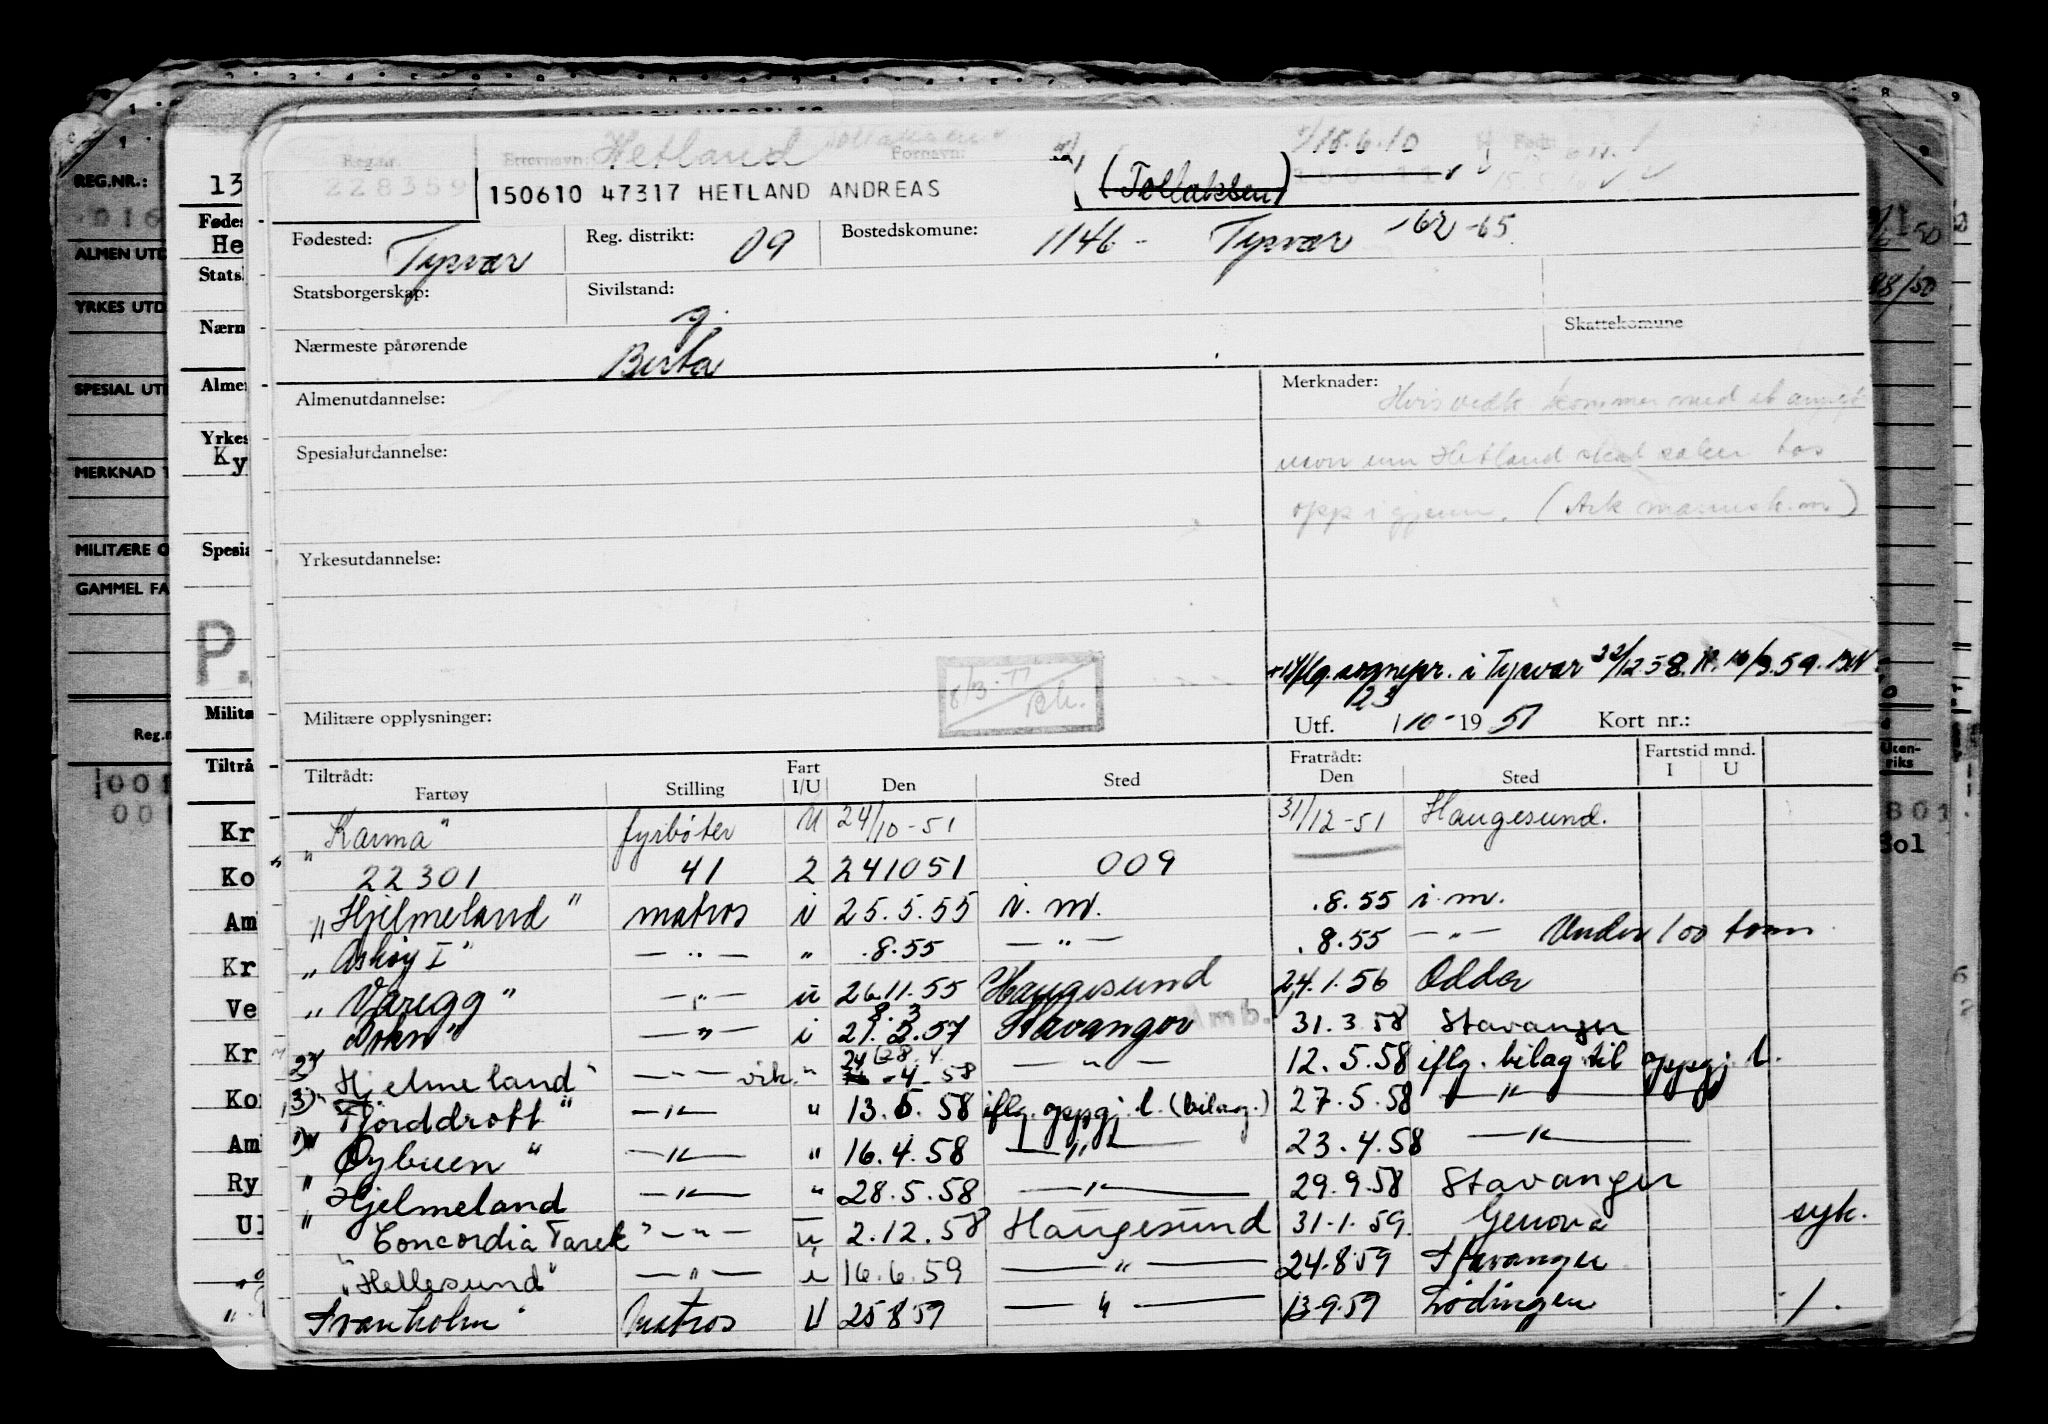 Reg.nr. Etternavn: Hetland Fornavn: 15.6.10 Født:
228359
150610 47317 HETLAND ANDREAS (Tollaksen)
Fødested: Tysvær Reg. distrikt: 09 Bostedskomune: 1146 - Tysvær -62-65
Statsborgerskap: Sivilstand: g.
Skattekomune
Nærmeste pårørende Berta
Almenutdannelse: Merknader: Hvis vedk kommer med
Spesialutdannelse: Hetland skal saken tas
opp igjenn.
Yrkesutdannelse:
iflg. sognepr. i Tysvær 22/12 58.
8/3-77
Militære opplysninger: Utf. 1 10-1957 Kort nr.:
Tiltrådt: Fratrådt: Fartstid mnd.
Fartøy Stilling Fart I/U Den Sted Den Sted I U
"Karma" fyrbøter U 24/10-51 31/12-51 Haugesund.
22301 41 2 241051 009
"Hjelmeland" matros i 25.5.55 i.m. .8.55 i.m.
"Askøy I" — " — " .8.55 — " — .8.55 — " — Under 100 tonn
"Varegg" — " — u 26.11.55 Haugesund 24.1.56 Odda
— " — i 21.2.57 Stavanger 31.3.58 Stavanger
2) Hjelmeland" — " — vik. " 4-58 — " — 12.5.58 iflg. bilag til oppgj. l.
3) "Fjorddrott" — " — " 13.5.58 iflg. oppgj. l. (bilag.) 27.5.58 — " —
1) "Øybuen" — " — " 16.4.58 — " — 23.4.58 — " —
" Hjelmeland — " — " 28.5.58 — " — 29.9.58 Stavanger
" Concordia Tarek" — " — u 2.12.58 Haugesund 31.1.59 Genova syk.
"Hellesund" — " — i 16.6.59 — " — 24.8.59 Stavanger
Svanholm Matros U 25 8 59 — " — 13-9.59 Lødingen /.
REG.NR.: 13
ALMEN UTD
YRKES UTD
SPESIAL UTD
MERKNAD T
MILITÆRE O
GAMMEL FA
Reg.n
Fødes
He
Statsl
Nærm
Almen
Yrkes
Ky
Spesia
P.
Milita
Tiltrå
Kr
Ko
Am
Kr
Ve
Kr
Ko
Am
Ry
Ul